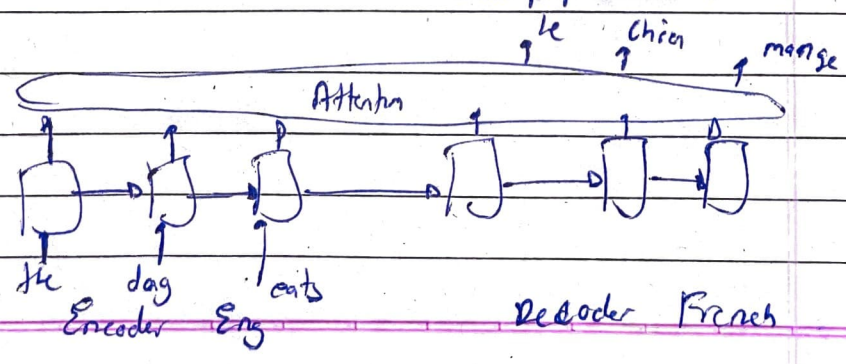 le chien mange
Attention
the dog eats
Encoder Eng Decoder French